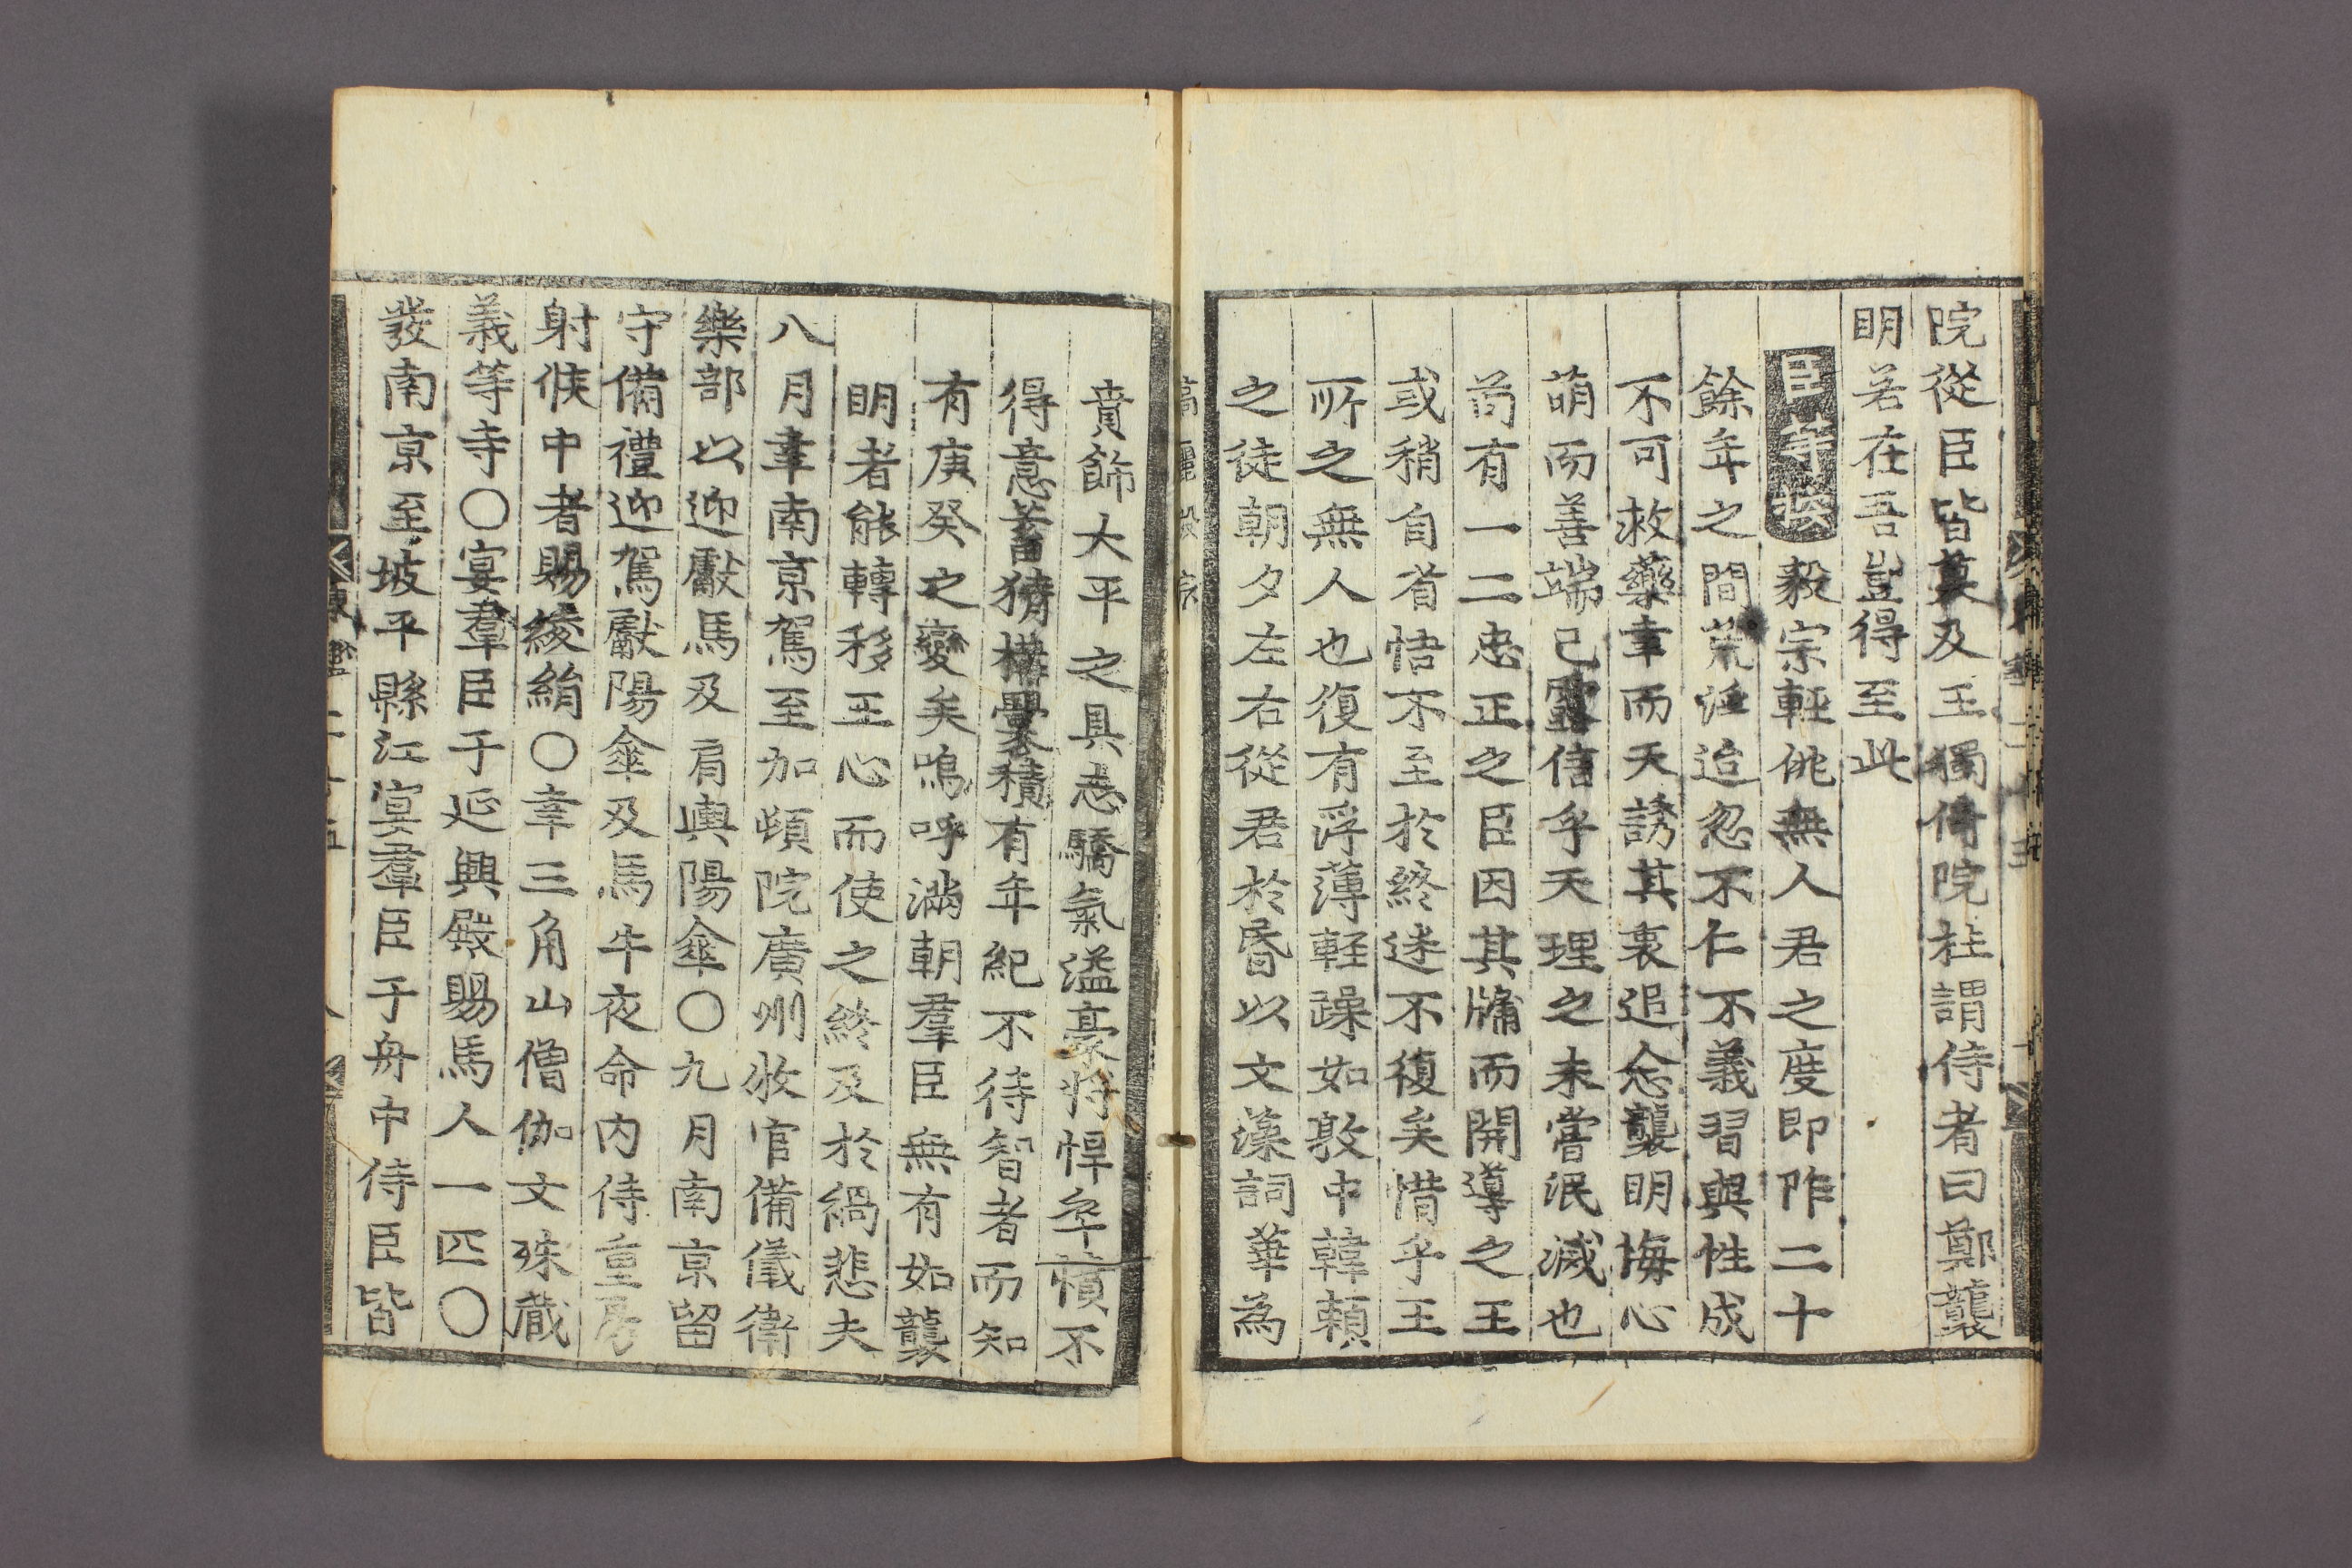 院從臣皆莫及王獨倚院柱謂侍者曰鄭襲
明若在吾豈得至此
臣等按毅宗輕佻無人君之度即阼二十
餘年之間荒淫迨忽不仁不義習與性成
不可救藥幸而天誘其衷追念襲明悔心
萌而善端已露信乎天理之未嘗泯滅也
苟有一二忠正之臣因其牖而開導之王
或稍自省悟不至於終迷不復矣惜乎王
所之無人也復有浮薄輕躁如敦中韓賴
之徒朝夕左右從君於昏以文藻詞華為
高麗毅宗
賁飾大平之具志驕氣溢豪將悍卒憤不
得意蓄猜構釁褁積有年紀不待智者而知
有庚癸之變矣嗚呼滿朝羣臣無有如襲
明者能轉移王心而使之終及於禍悲夫
八月幸南京駕至加頓院廣州牧官備儀衛
樂部以迎獻馬及肩輿陽傘〇九月南京留
守備禮迎駕獻陽傘及馬牛夜命內侍重房
射侯中者賜綾絹〇幸三角山僧伽文殊藏
義等寺〇宴羣臣于延興殿賜馬人一匹〇
發南京至坡平縣江宴羣臣于舟中侍臣皆